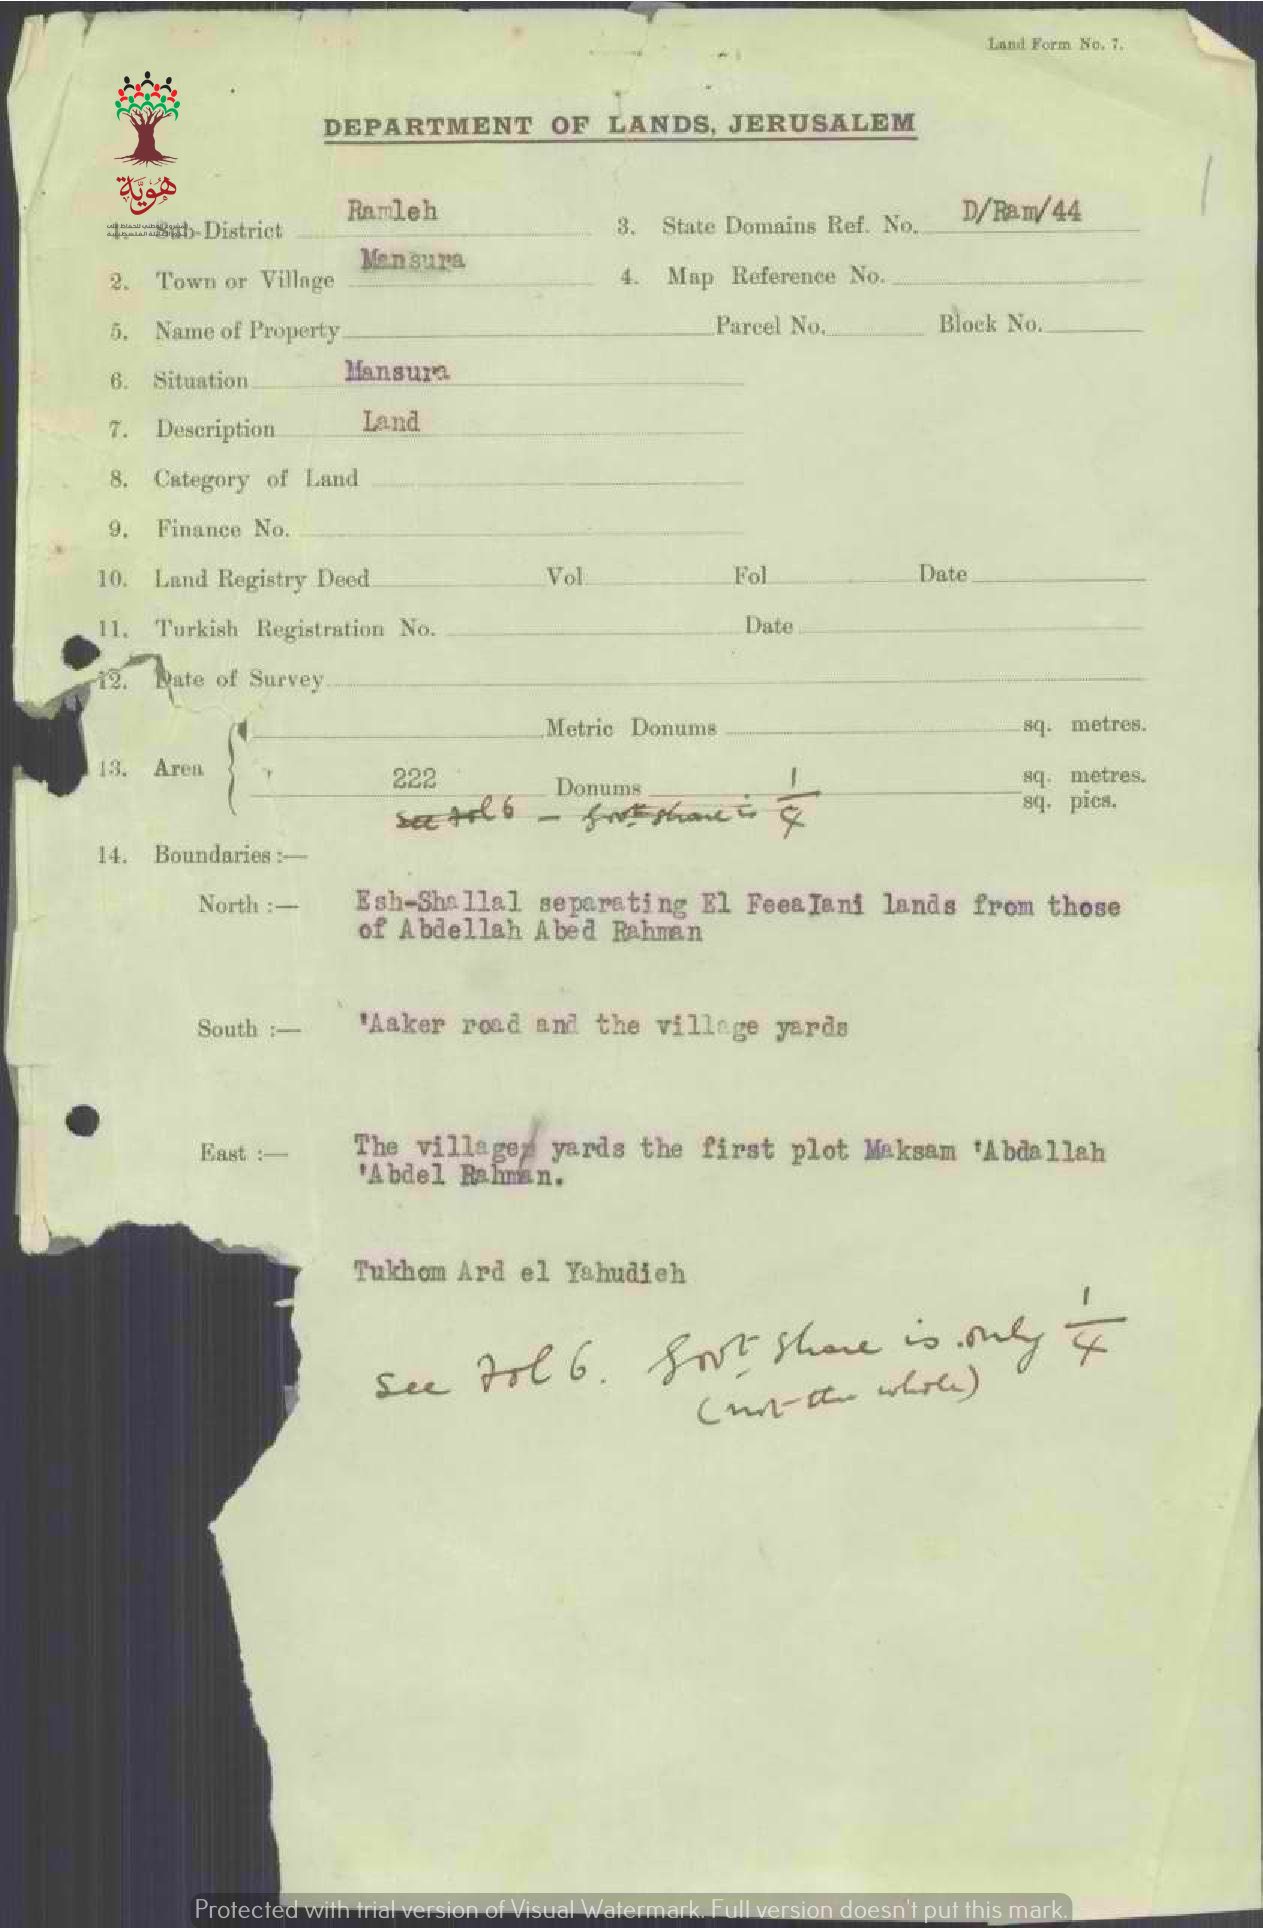 Land Form No. 7.
DEPARTMENT OF LANDS, JERUSALEM
هويّة
1
Sub-District Ramleh
3. State Domains Ref. No. D/Ram/44
2. Town or Village Mansura
4. Map Reference No.
5. Name of Property Parcel No. Block No.
6. Situation Mansura
7. Description Land
8. Category of Land
9. Finance No.
10. Land Registry Deed Vol Fol Date
11. Turkish Registration No. Date
12. Date of Survey
Metric Donums sq. metres.
13. Area 222 Donums sq. metres.
sq. pics.
see fol 6 — Govt share is 1/4
14. Boundaries :—
North :— Esh-Shallal separating El FeeaIani lands from those
of Abdellah Abed Rahman
South :— 'Aaker road and the village yards
East :— The village yards the first plot Maksam 'Abdallah
'Abdel Rahman.
Tukhom Ard el Yahudieh
see fol 6. Govt share is only 1/4
(not the whole)
Protected with trial version of Visual Watermark. Full version doesn't put this mark.